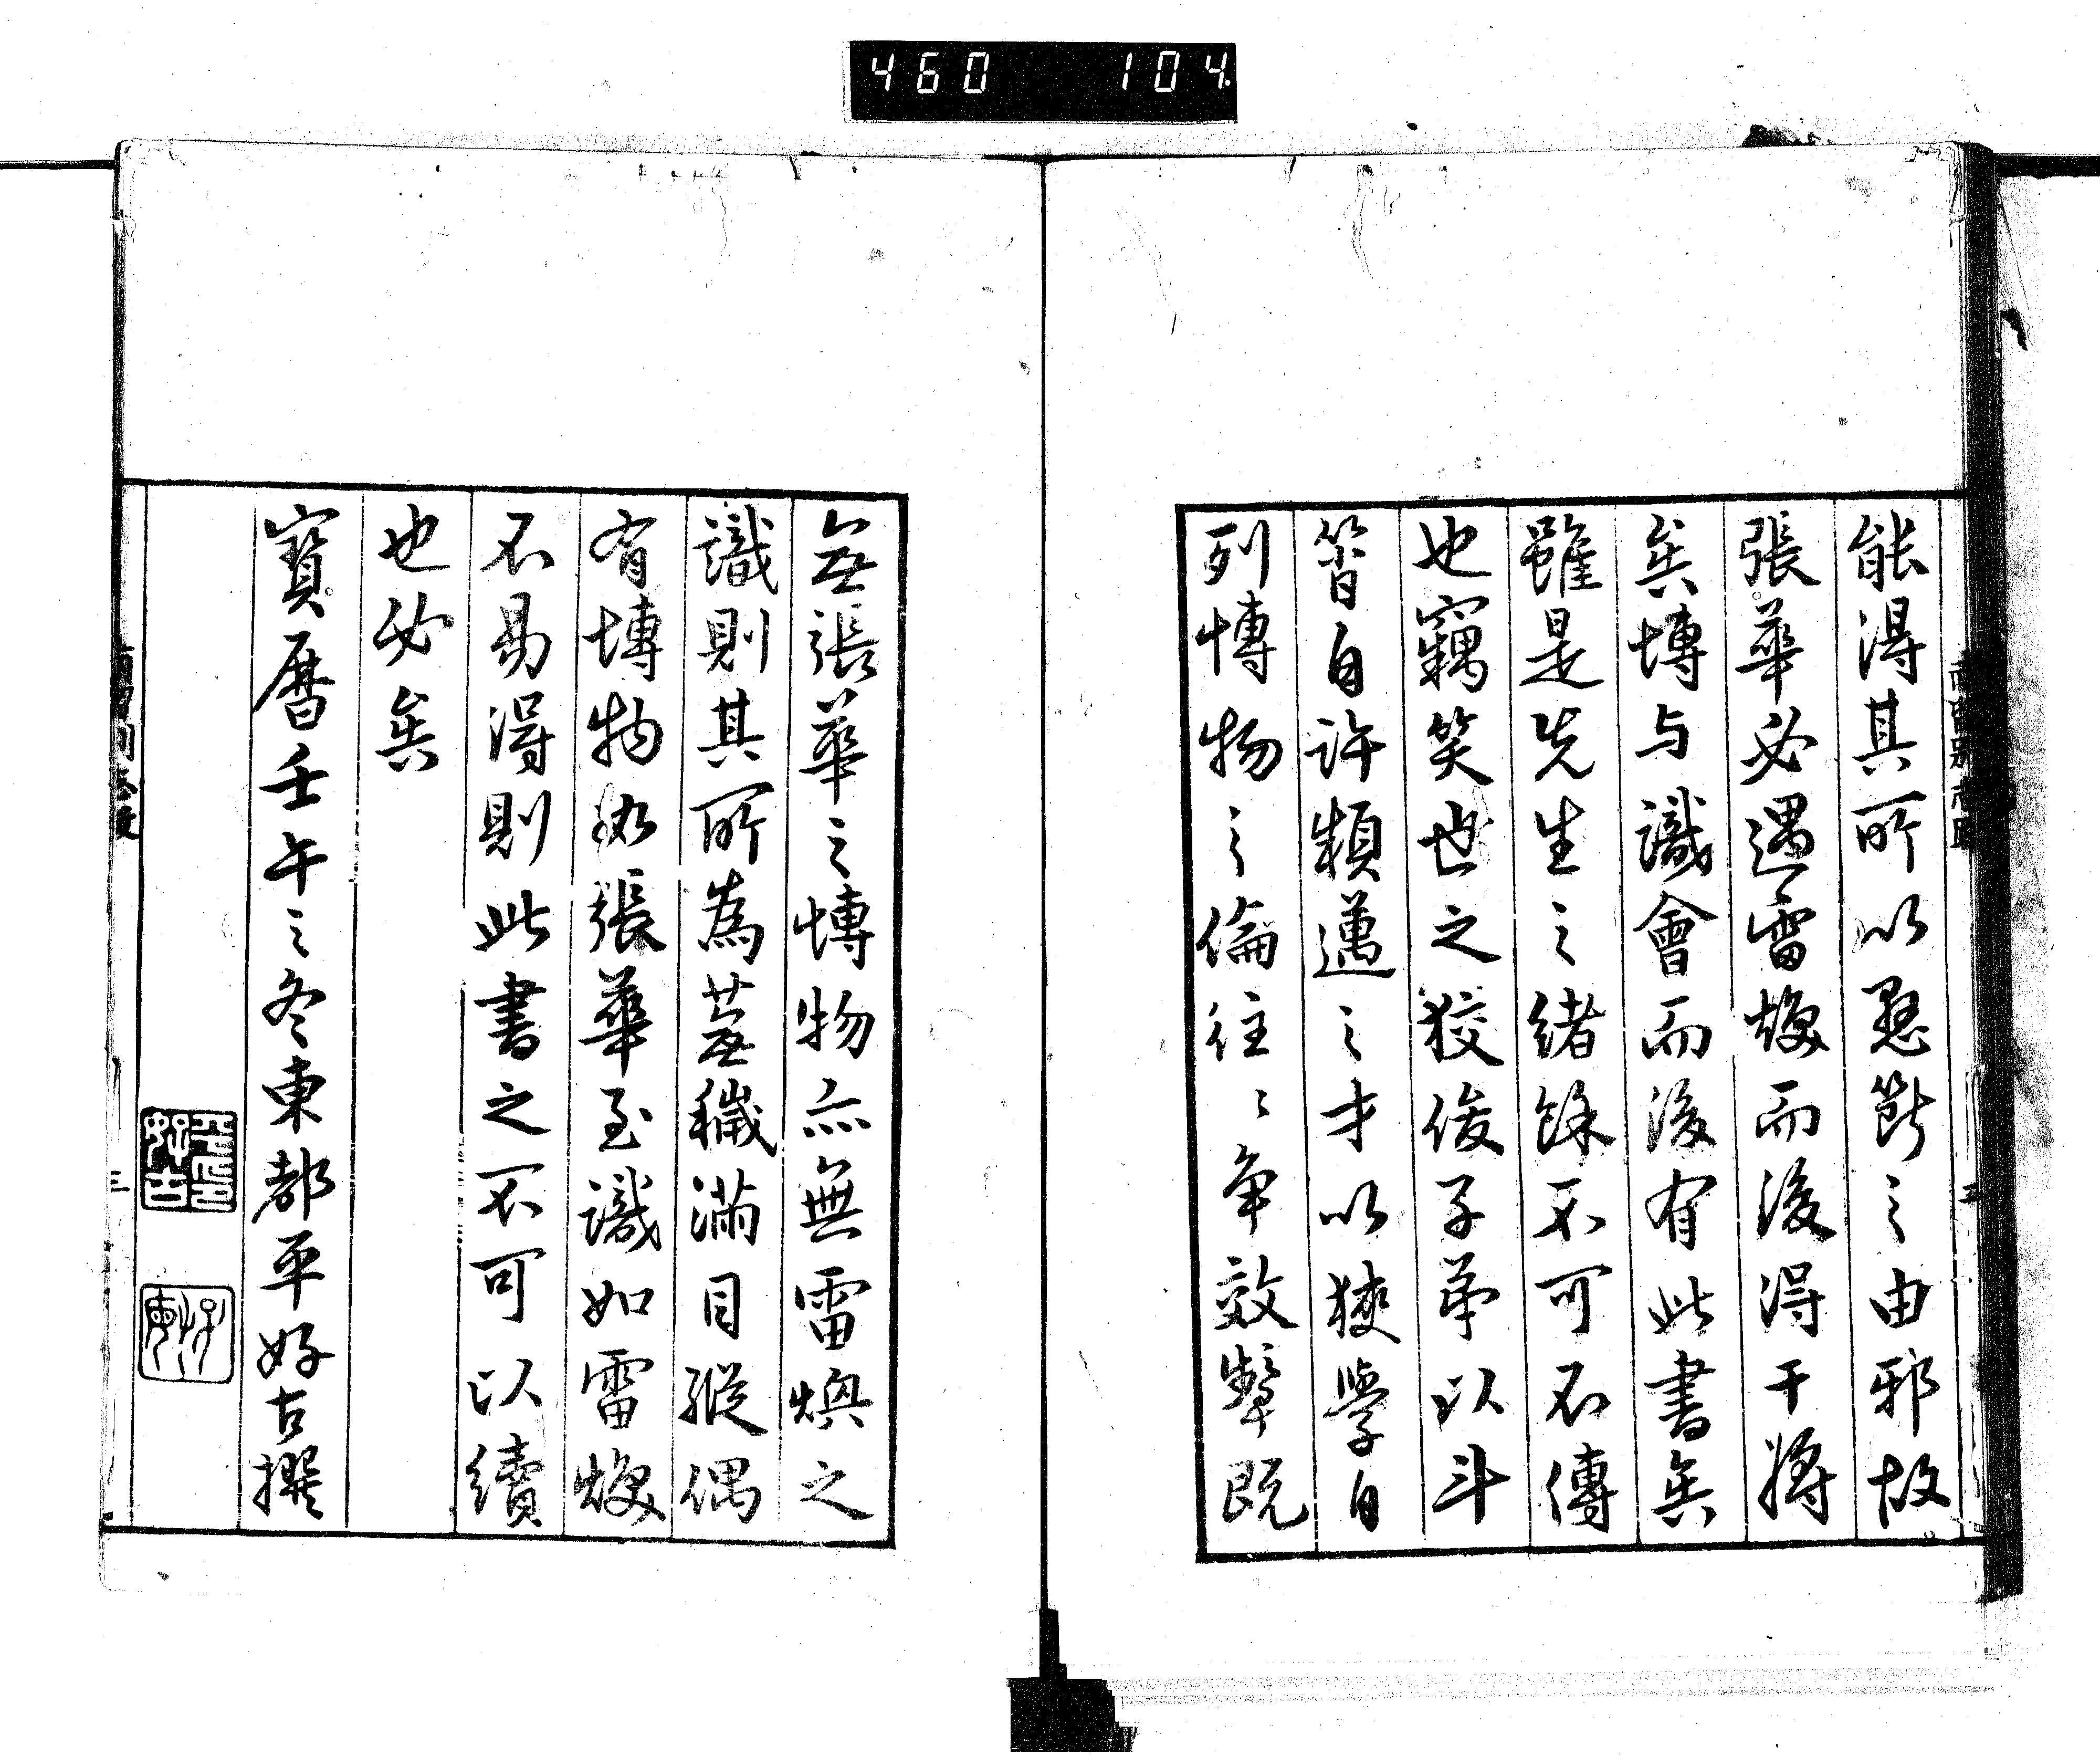 460 104
能得其所以愚斲之由邪故
張華必遇雷煥而後得干將
矣博与識會而後有此書矣
雖是先生之緒餘不可不傳
也竊笑世之狡俊子弟以斗
筲自許類邁之才以狹學自
列博物之倫往々争效顰既
無張華之博物亦無雷煥之
識則其所為蕪穢滿目縱偶
有博物如張華至識如雷煥
不易得則此書之不可以續
也必矣
寶曆壬午之冬東都平好古撰